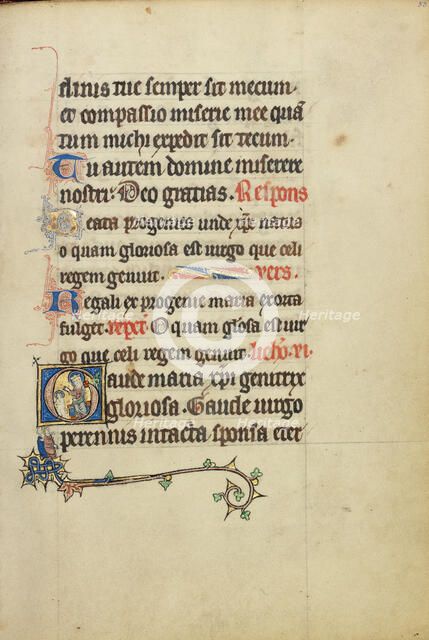 flinis tue semper sit mecum
et compassio miserie mee quā
tum michi expedit sit tecum.
Tu autem domine miserere
nostri. Deo gratias. Respons
Beata progenies unde xp̄c natus
o quam gloriosa est uirgo que celi
regem genuit. vers.
Regali ex progenie maria exorta
fulget. repet̄. O quam glōsa est uir
go que celi regem genuit. lectio. vi.
Gaude maria xp̄i genitrix
gloriosa. Gaude uirgo
perennis intacta sponsa eter
Heritage
Heritage
Heritage
Heritage